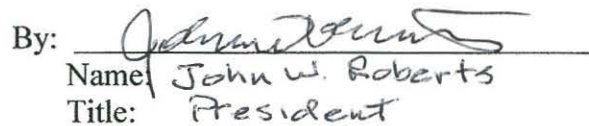 By:
Name: John W. Roberts
Title: President